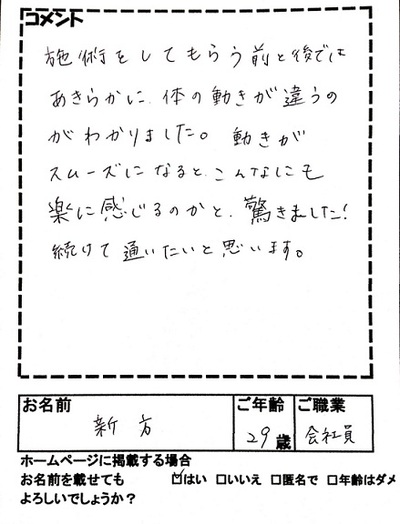 コメント
施術をしてもらう前と後では
あきらかに、体の動きが違うの
がわかりました。動きが
スムーズになると、こんなにも
楽に感じるのかと、驚きました!
続けて通いたいと思います。
お名前 ご年齢 ご職業
新方 29歳 会社員
ホームページに掲載する場合
お名前を載せても ☑はい □いいえ □匿名で □年齢はダメ
よろしいでしょうか?